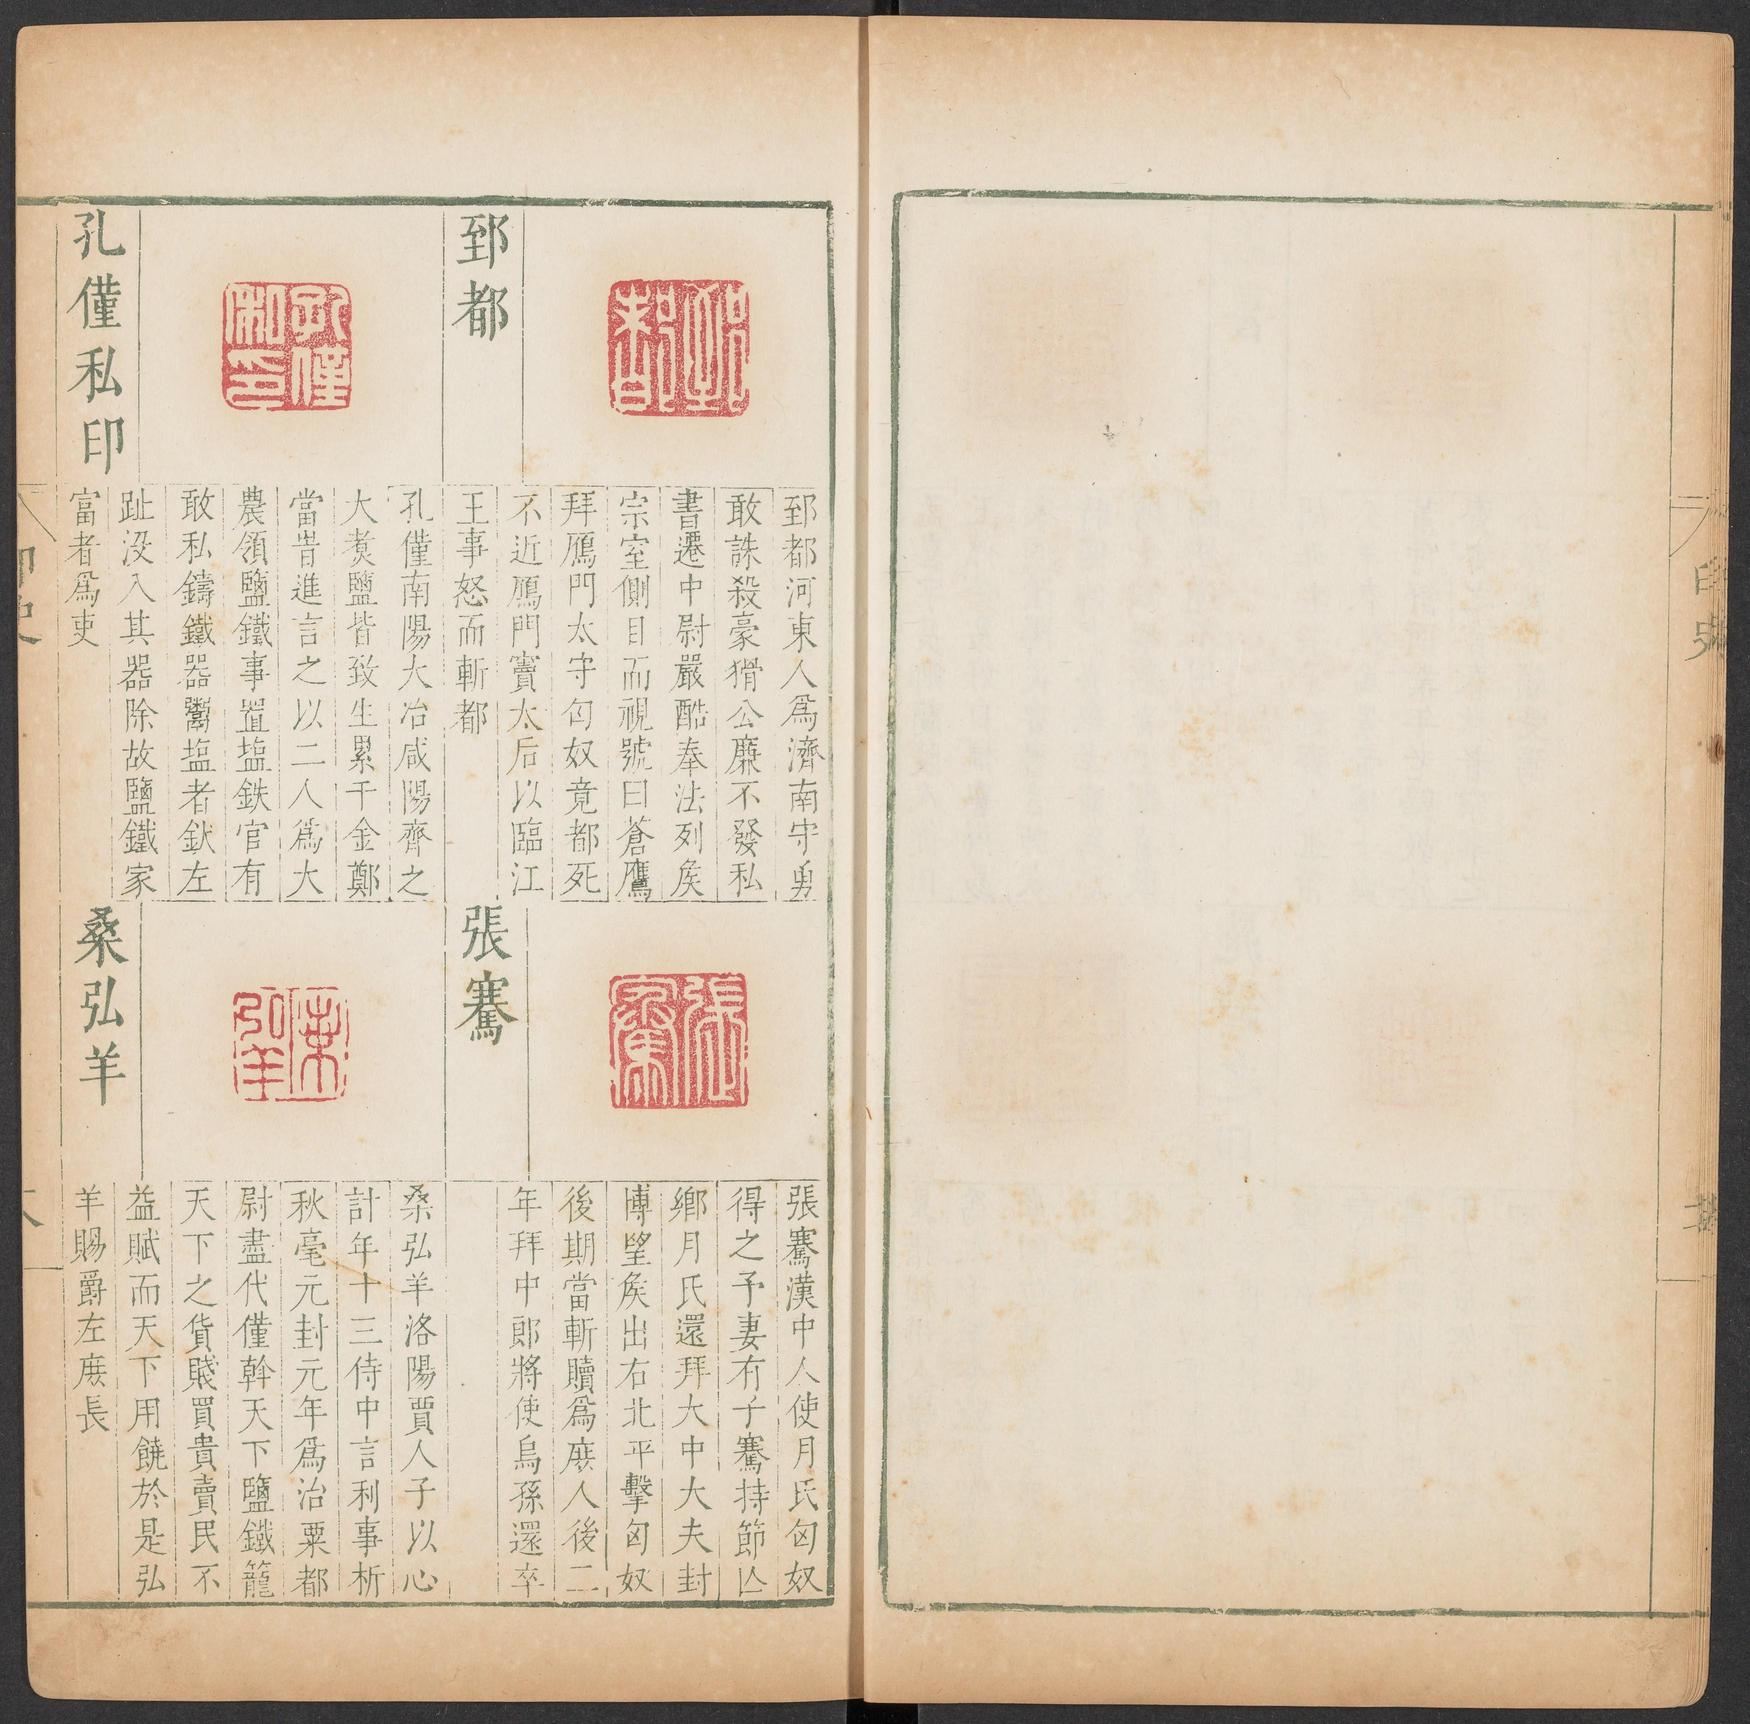 印史
郅都
郅都河東人爲濟南守勇
敢誅殺豪猾公廉不發私
書遷中尉嚴酷奉法列矦
宗室側目而視號曰蒼鷹
拜鴈門太守匈奴竟都死
不近鴈門竇太后以臨江
王事怒而斬都
孔僅私印
孔僅南陽大冶咸陽齊之
大煑鹽皆致生累千金鄭
當旹進言之以二人爲大
農領鹽鐵事置塩鉄官有
敢私鑄鐵器鬻塩者釱左
趾沒入其器除故鹽鐵家
富者爲吏
張騫
張騫漢中人使月氏匈奴
得之予妻有子騫持節亾
鄉月氏還拜大中大夫封
博望矦出右北平擊匈奴
後期當斬贖爲庻人後二
年拜中郎將使烏孫還卒
桑弘羊
桑弘羊洛陽賈人子以心
計年十三侍中言利事析
秋毫元封元年爲治粟都
尉盡代僅斡天下鹽鐵籠
天下之貨賤買貴賣民不
益賦而天下用饒於是弘
羊賜爵左庻長